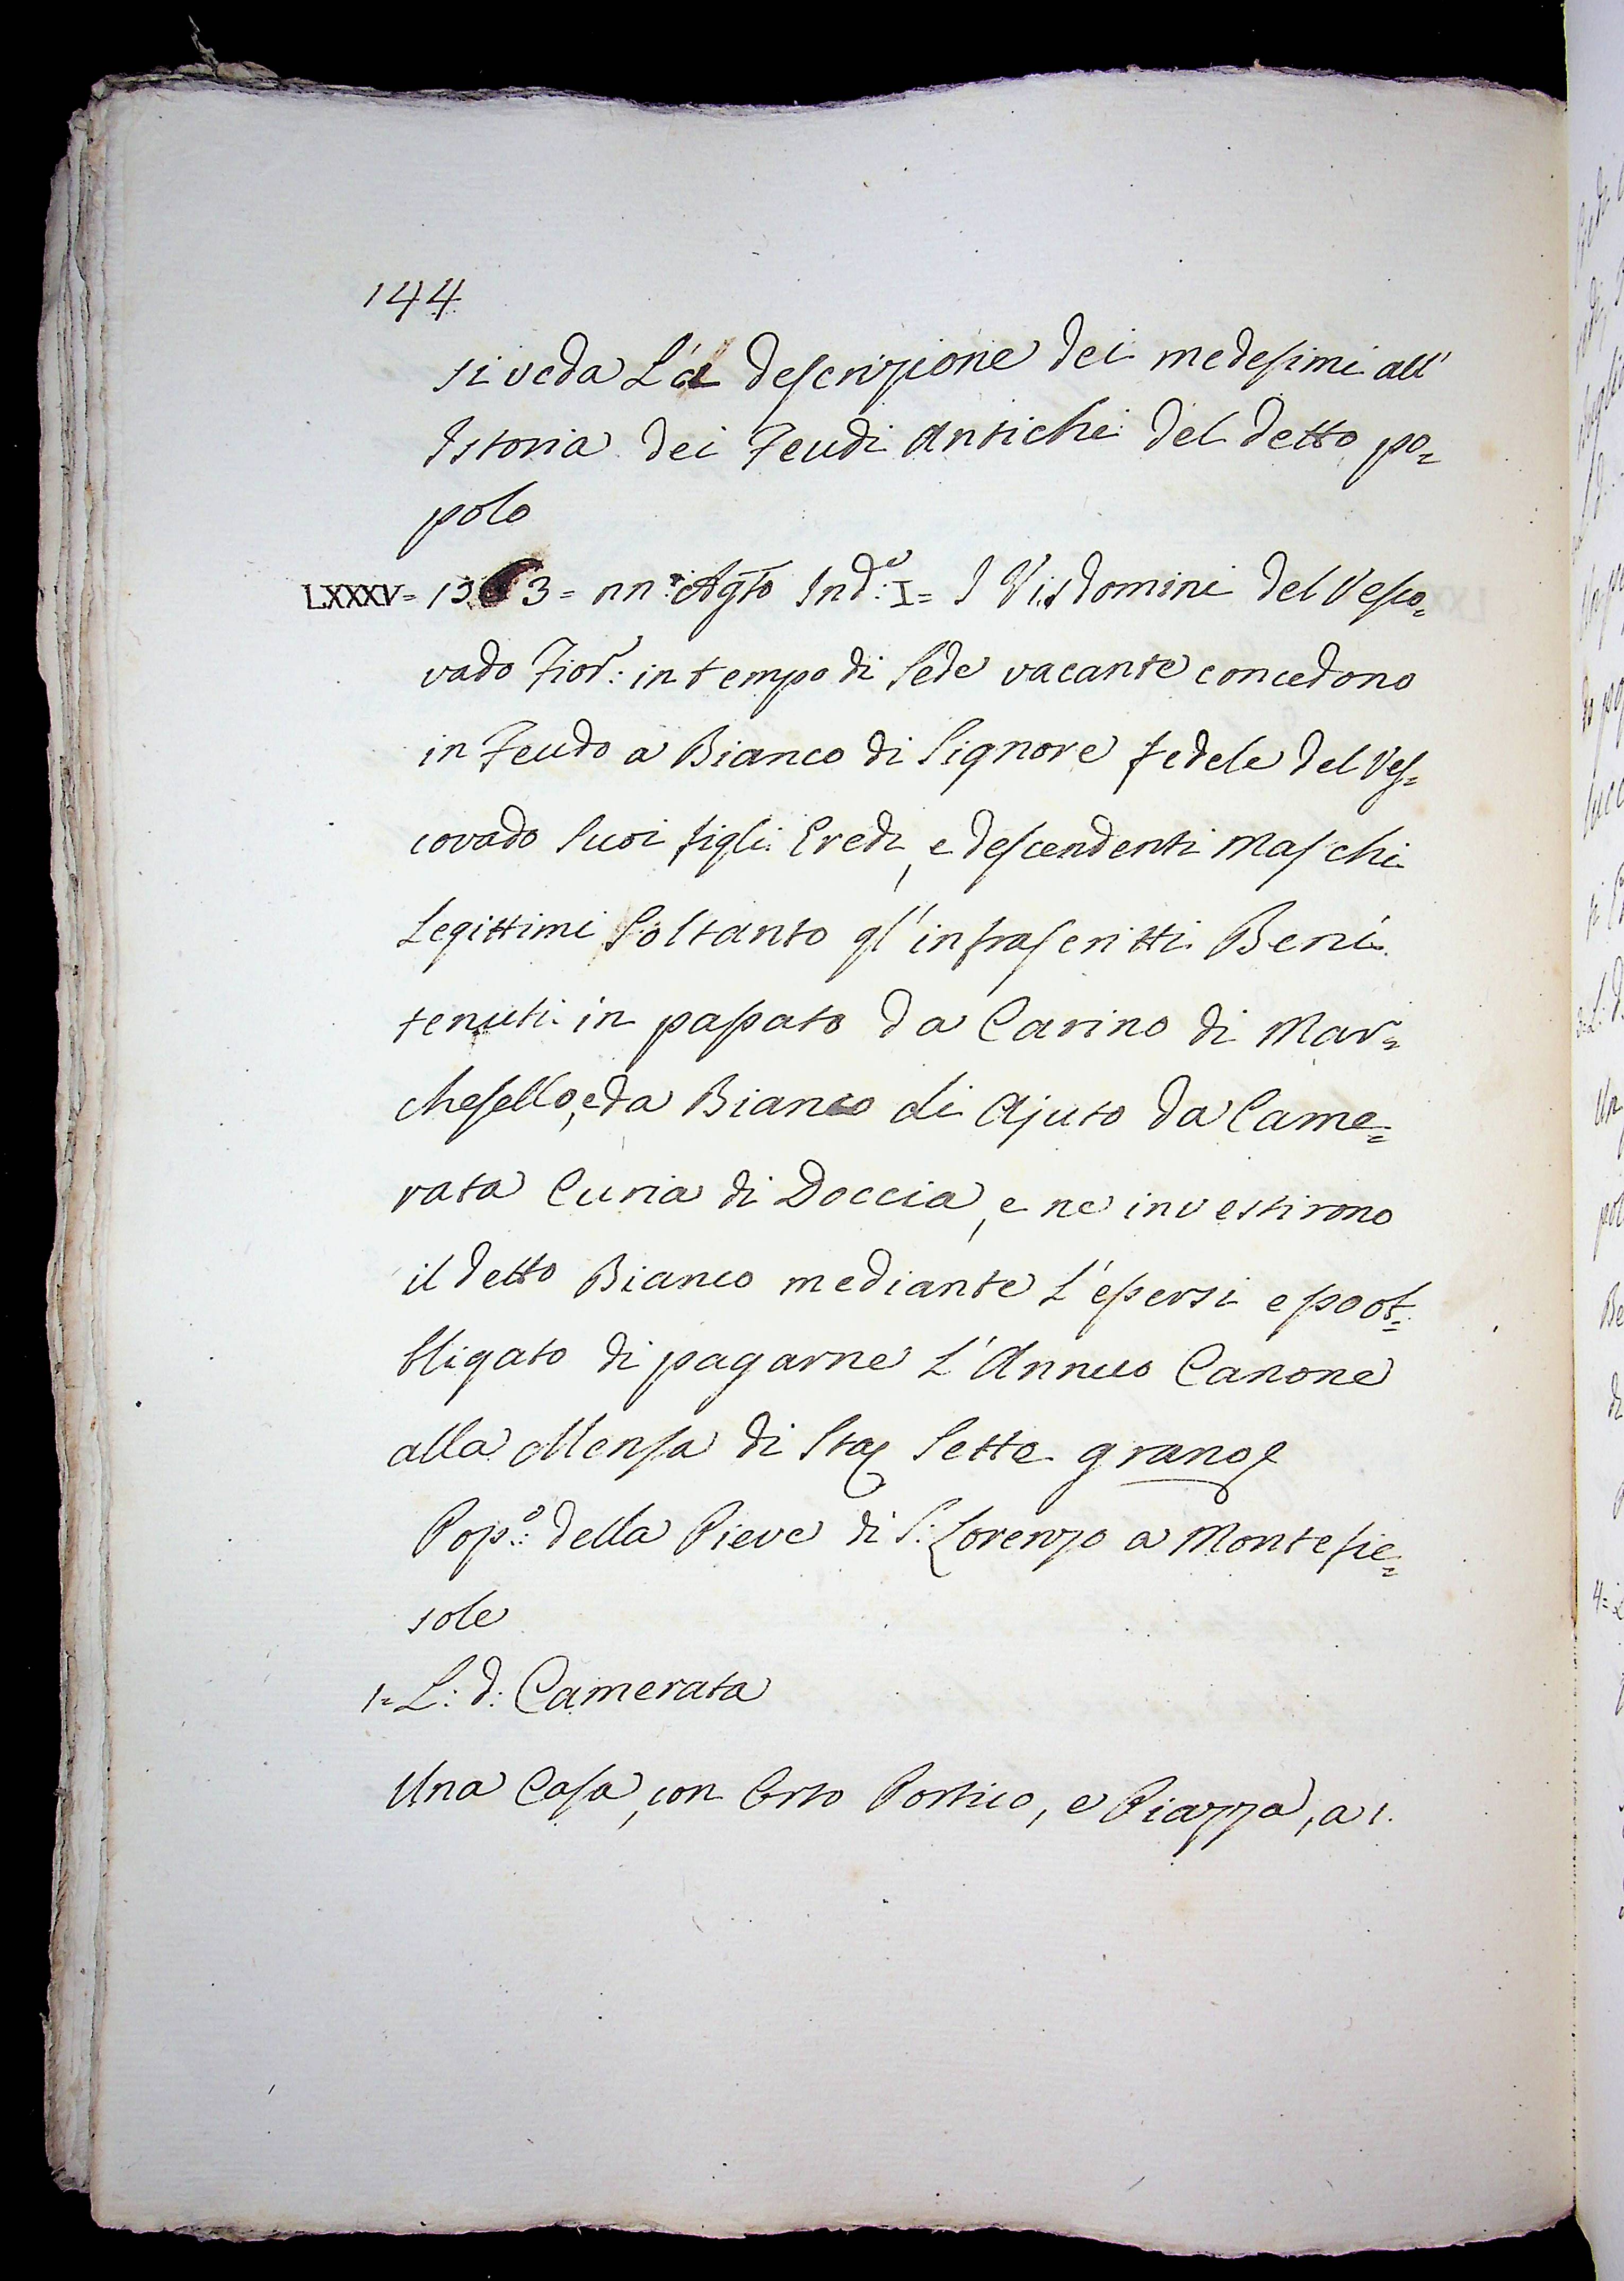 144
si veda La descrizione dei medesimi all'
Istoria dei Feudi Antichi del detto po=
polo
LXXXV= nn: Agto Ind.e: I= I Visdomini del Vesco=
vado Fior: in tempo di Sede vacante concedono
in Feudo a Bianco di Signore fedele del Ves=
covado Suoi figli Eredi, e descendenti Maschi
Legittimi Soltanto gl'infrascritti Beni
tenuti in passato da Carino di Mar=
chesello, e da Bianco di Ajuto da Came=
rata Curia di Doccia, e ne investirono
il detto Bianco mediante L'essersi esso ob=
bligato di pagarne L'Annuo Canone
alla Mensa di Sta Sette grano
Pop.o: della Pieve di S: Lorenzo a Montefie=
sole
1= L: d: Camerata
Una Casa, con Orto Portico, e Piazza, a 1.